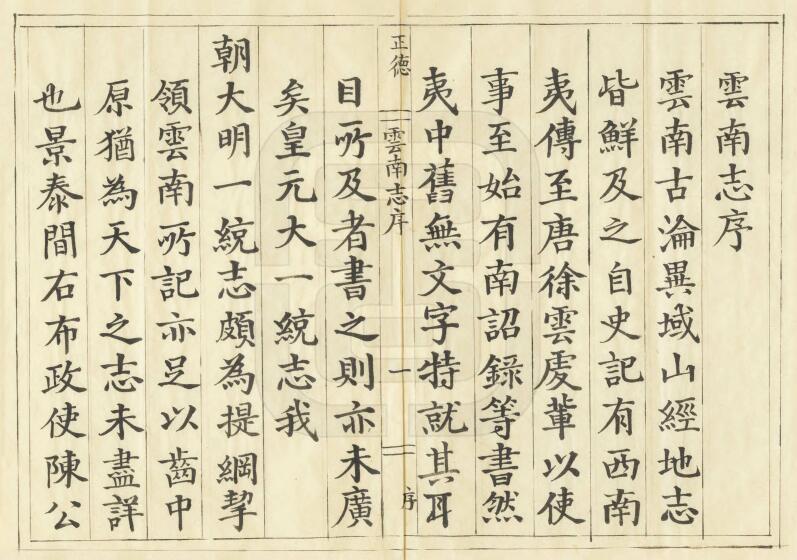 雲南志序
雲南古淪異域山經地志
皆鮮及之自史記有西南
夷傳至唐徐雲虔輩以使
事至始有南詔録等書然
夷中舊無文字特就其耳
正德
雲南志序
一
序
目所及者書之則亦未廣
矣皇元大一統志我
朝大明一統志頗為提綱挈
領雲南所記亦足以齒中
原猶為天下之志未盡詳
也景泰間右布政使陳公